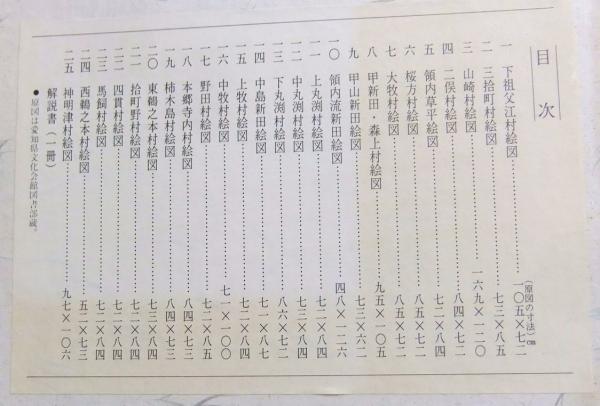 目次
(原図の寸法)cm
一 下祖父江村絵図……一〇五×七二
二 三拾町村絵図……七三×八五
三 山崎村絵図……一六九×一二〇
四 二俣村絵図……八四×七二
五 領内草平絵図……七二×八四
六 桜方村絵図……八五×七二
七 大牧村絵図……八五×七二
八 甲新田・森上村絵図……九五×一〇五
九 甲山新田絵図……七三×六二
一〇 領内流新田絵図……四八×一二六
一一 上丸渕村絵図……七二×八四
一二 中丸渕村絵図……七三×八四
一三 下丸渕村絵図……八六×七二
一四 中島新田絵図……七一×八七
一五 上牧村絵図……七二×八四
一六 中牧村絵図……七一×一〇〇
一七 野田村絵図……七二×八五
一八 本郷寺内村絵図……八四×七三
一九 柿木島村絵図……八四×七三
二〇 東鵜之本村絵図……七三×八四
二一 拾町野村絵図……七二×八四
二二 四貫村絵図……七二×八四
二三 馬飼村絵図……七二×八四
二四 西鵜之本村絵図……五二×七三
二五 神明津村絵図……九七×一〇六
解説書(一冊)
●原図は愛知県文化会館図書部蔵。